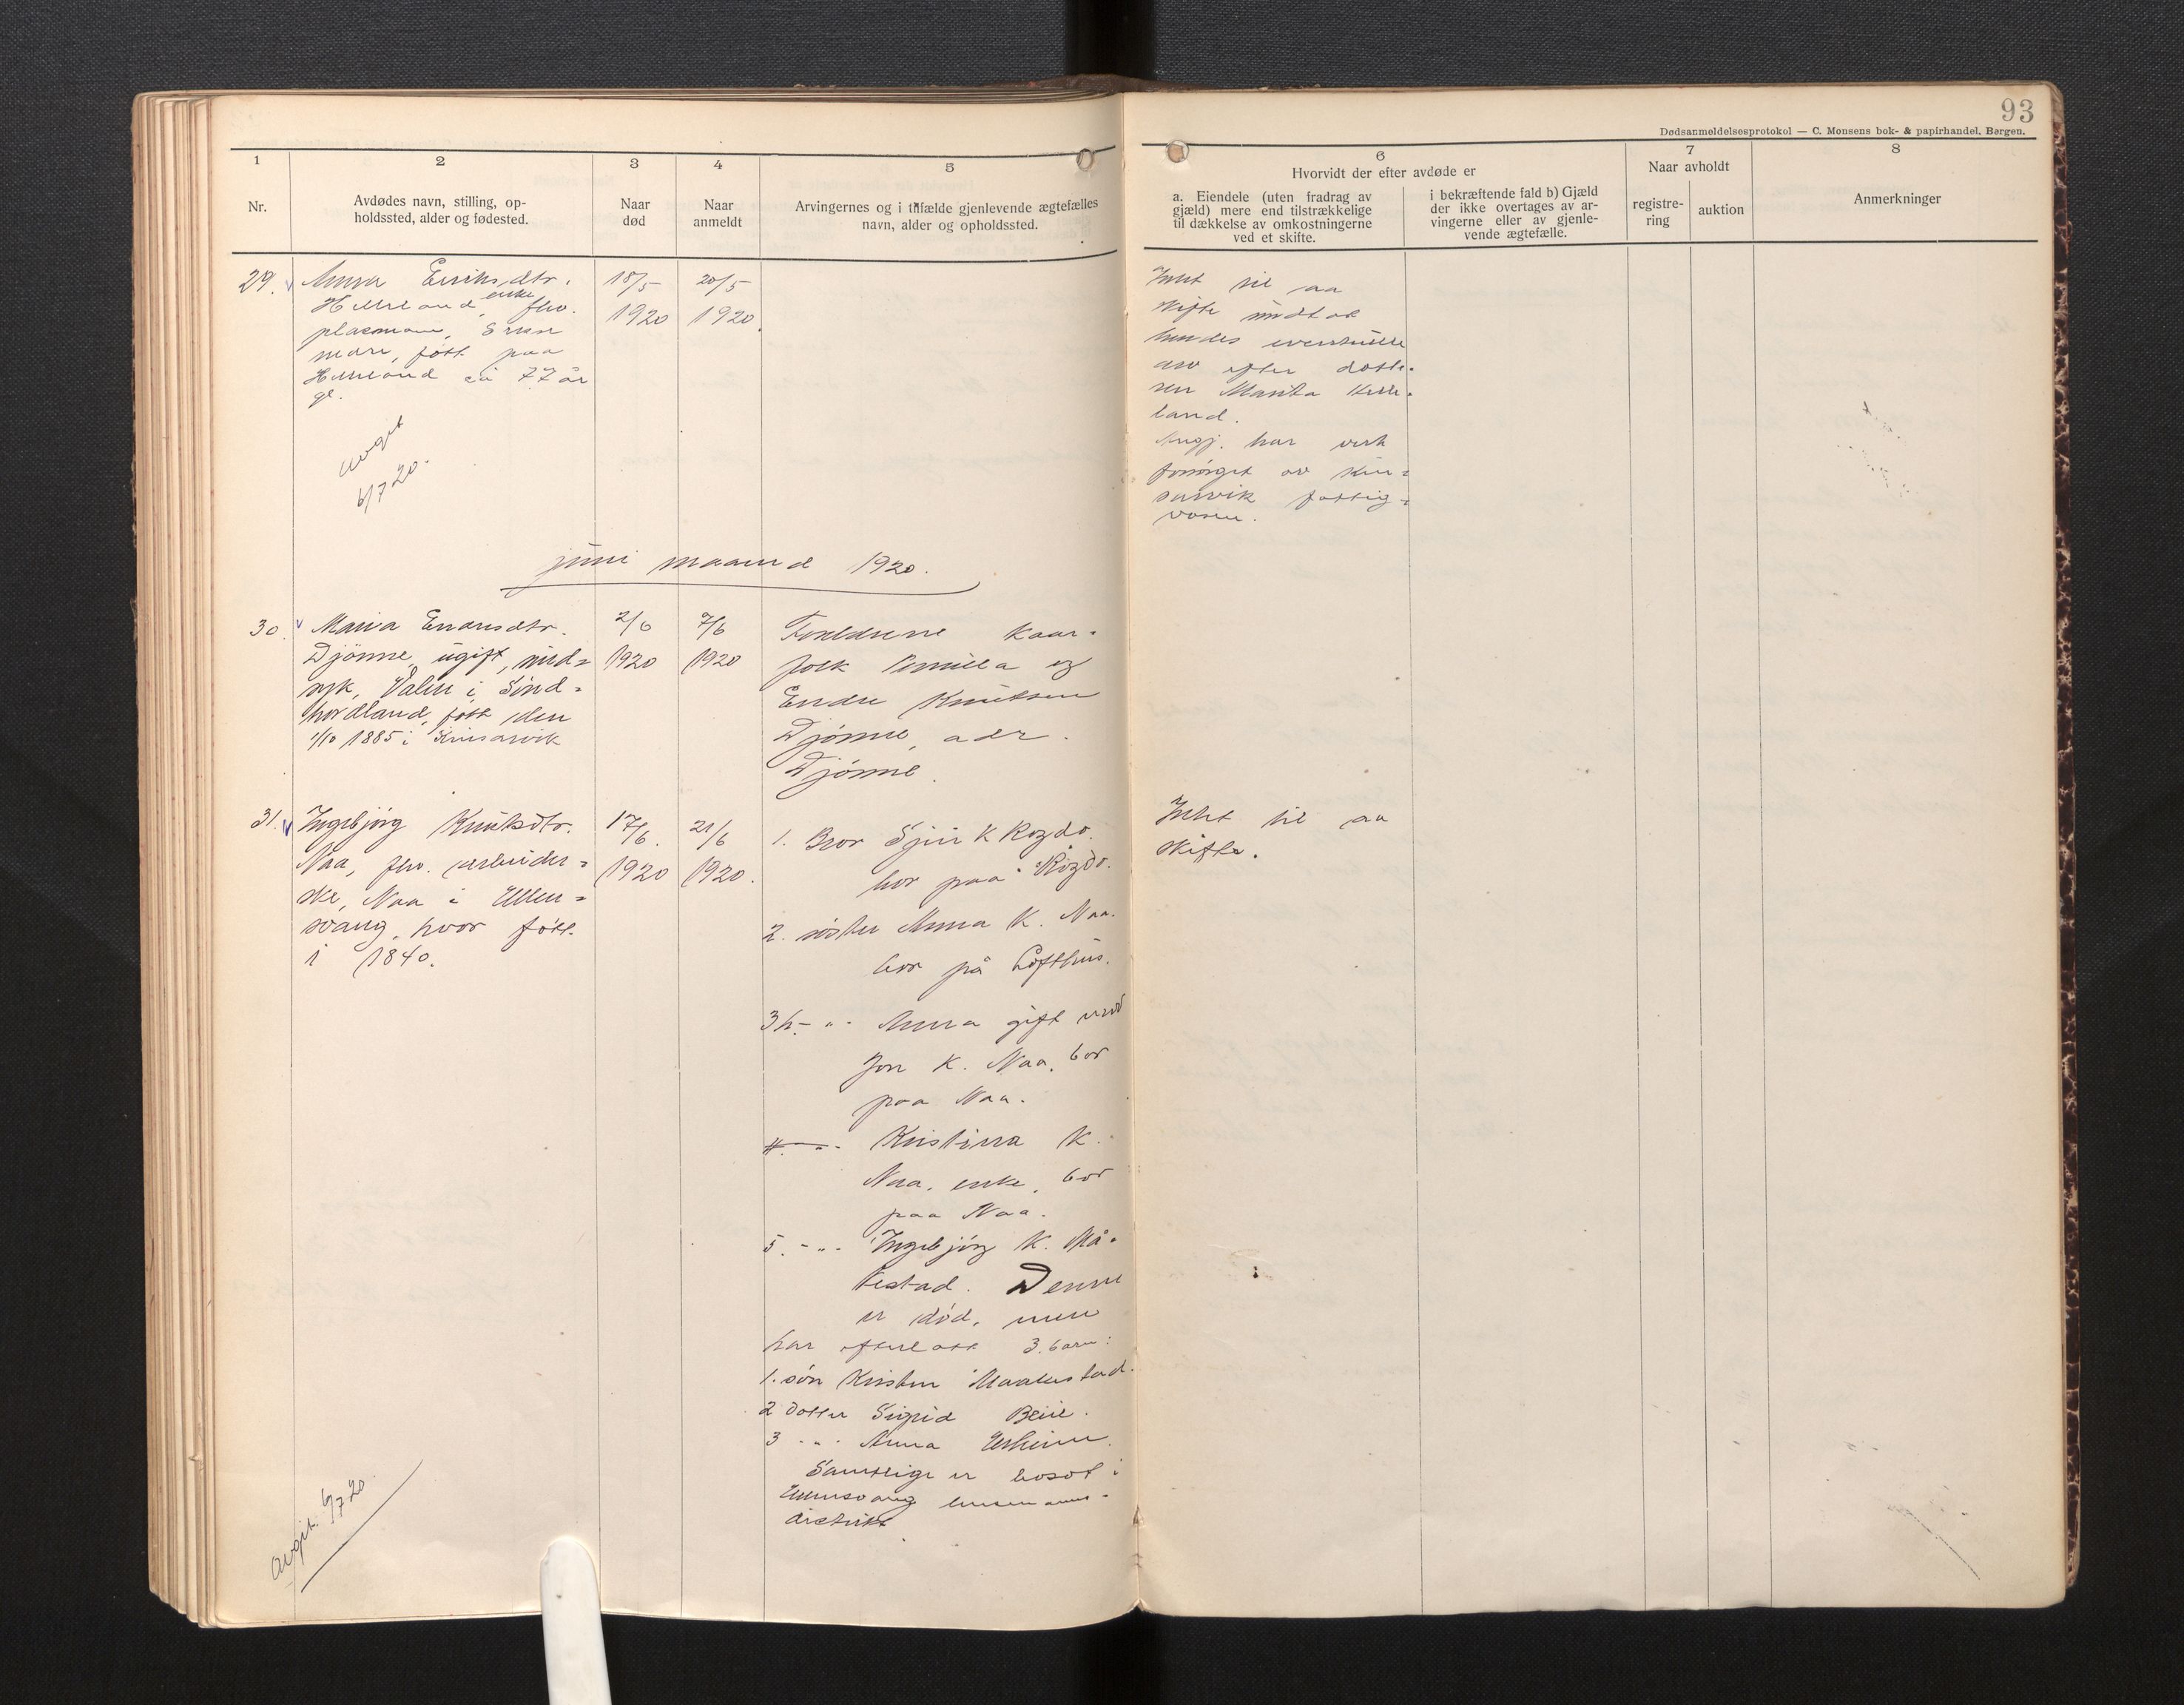 93
Dødsanmeldelsesprotokol — C. Monsens bok- & papirhandel, Bergen.
1
Nr.
2
Avdødes navn, stilling, op-
holdssted, alder og fødested.
3
Naar
død
4
Naar
anmeldt
5
Arvingernes og i tilfælde gjenlevende ægtefælles
navn, alder og opholdssted.
6
Hvorvidt der efter avdøde er
a. Eiendele (uten fradrag av
gjæld) mere end tilstrækkelige
til dækkelse av omkostningerne
ved et skifte.
i bekræftende fald b) Gjæld
der ikke overtages av ar-
vingerne eller av gjenle-
vende ægtefælle.
7
Naar avholdt
registre-
ring
auktion
8
Anmerkninger
29.
Anna Eriksdtr.
Helleland, enke, fhv.
plasmann,
nedre, født paa
Helleland ca 77 år
gl.
18/5
1920
20/5
1920.
Intet til aa
skifte undtat
hendes eventuelle
arv efter datte-
ren Marita Helle-
land.
Angj. har vert
forsørget av Kin-
sarvik fattig-
vesen.
avgit
6/7 20.
juni maaned 1920.
30.
Maria Endresdtr.
Djønne, ugift, sind-
syk, Valen i Sønd-
hordland, født den
1/10 1885 i Kinsarvik
2/6
1920
7/6
1920
Foreldrene kaar-
folk Pernilla og
Endre Knutsen
Djønne, adr.
Djønne.
31.
Ingebjørg Knutsdtr.
Naa, fhv. arbeider-
ske, Naa i Ullen-
svang, hvor født
i 1840.
17/6.
1920
21/6
1920.
1. Bror Sjur K Rogdo.
bor paa Rogdo.
2. søster Anna K. Naa.
bor på Lofthus.
3 h. - " - Anna gift med
Jon K. Naa, bor
paa Naa.
4. - " - Kristina K.
Naa, enke, bor
paa Naa.
5. - " - Ingebjørg K. Må-
kestad. Denne
er død, men
har efterlatt 3. barn:
1. søn Kristen Maakestad.
2 datter Sigrid Beiie.
3 - " - Anna Urheim.
Samtlige er bosat i
Ullensvang lensmanns-
distrikt.
Intet til aa
skifte.
avgit. 6/7 20